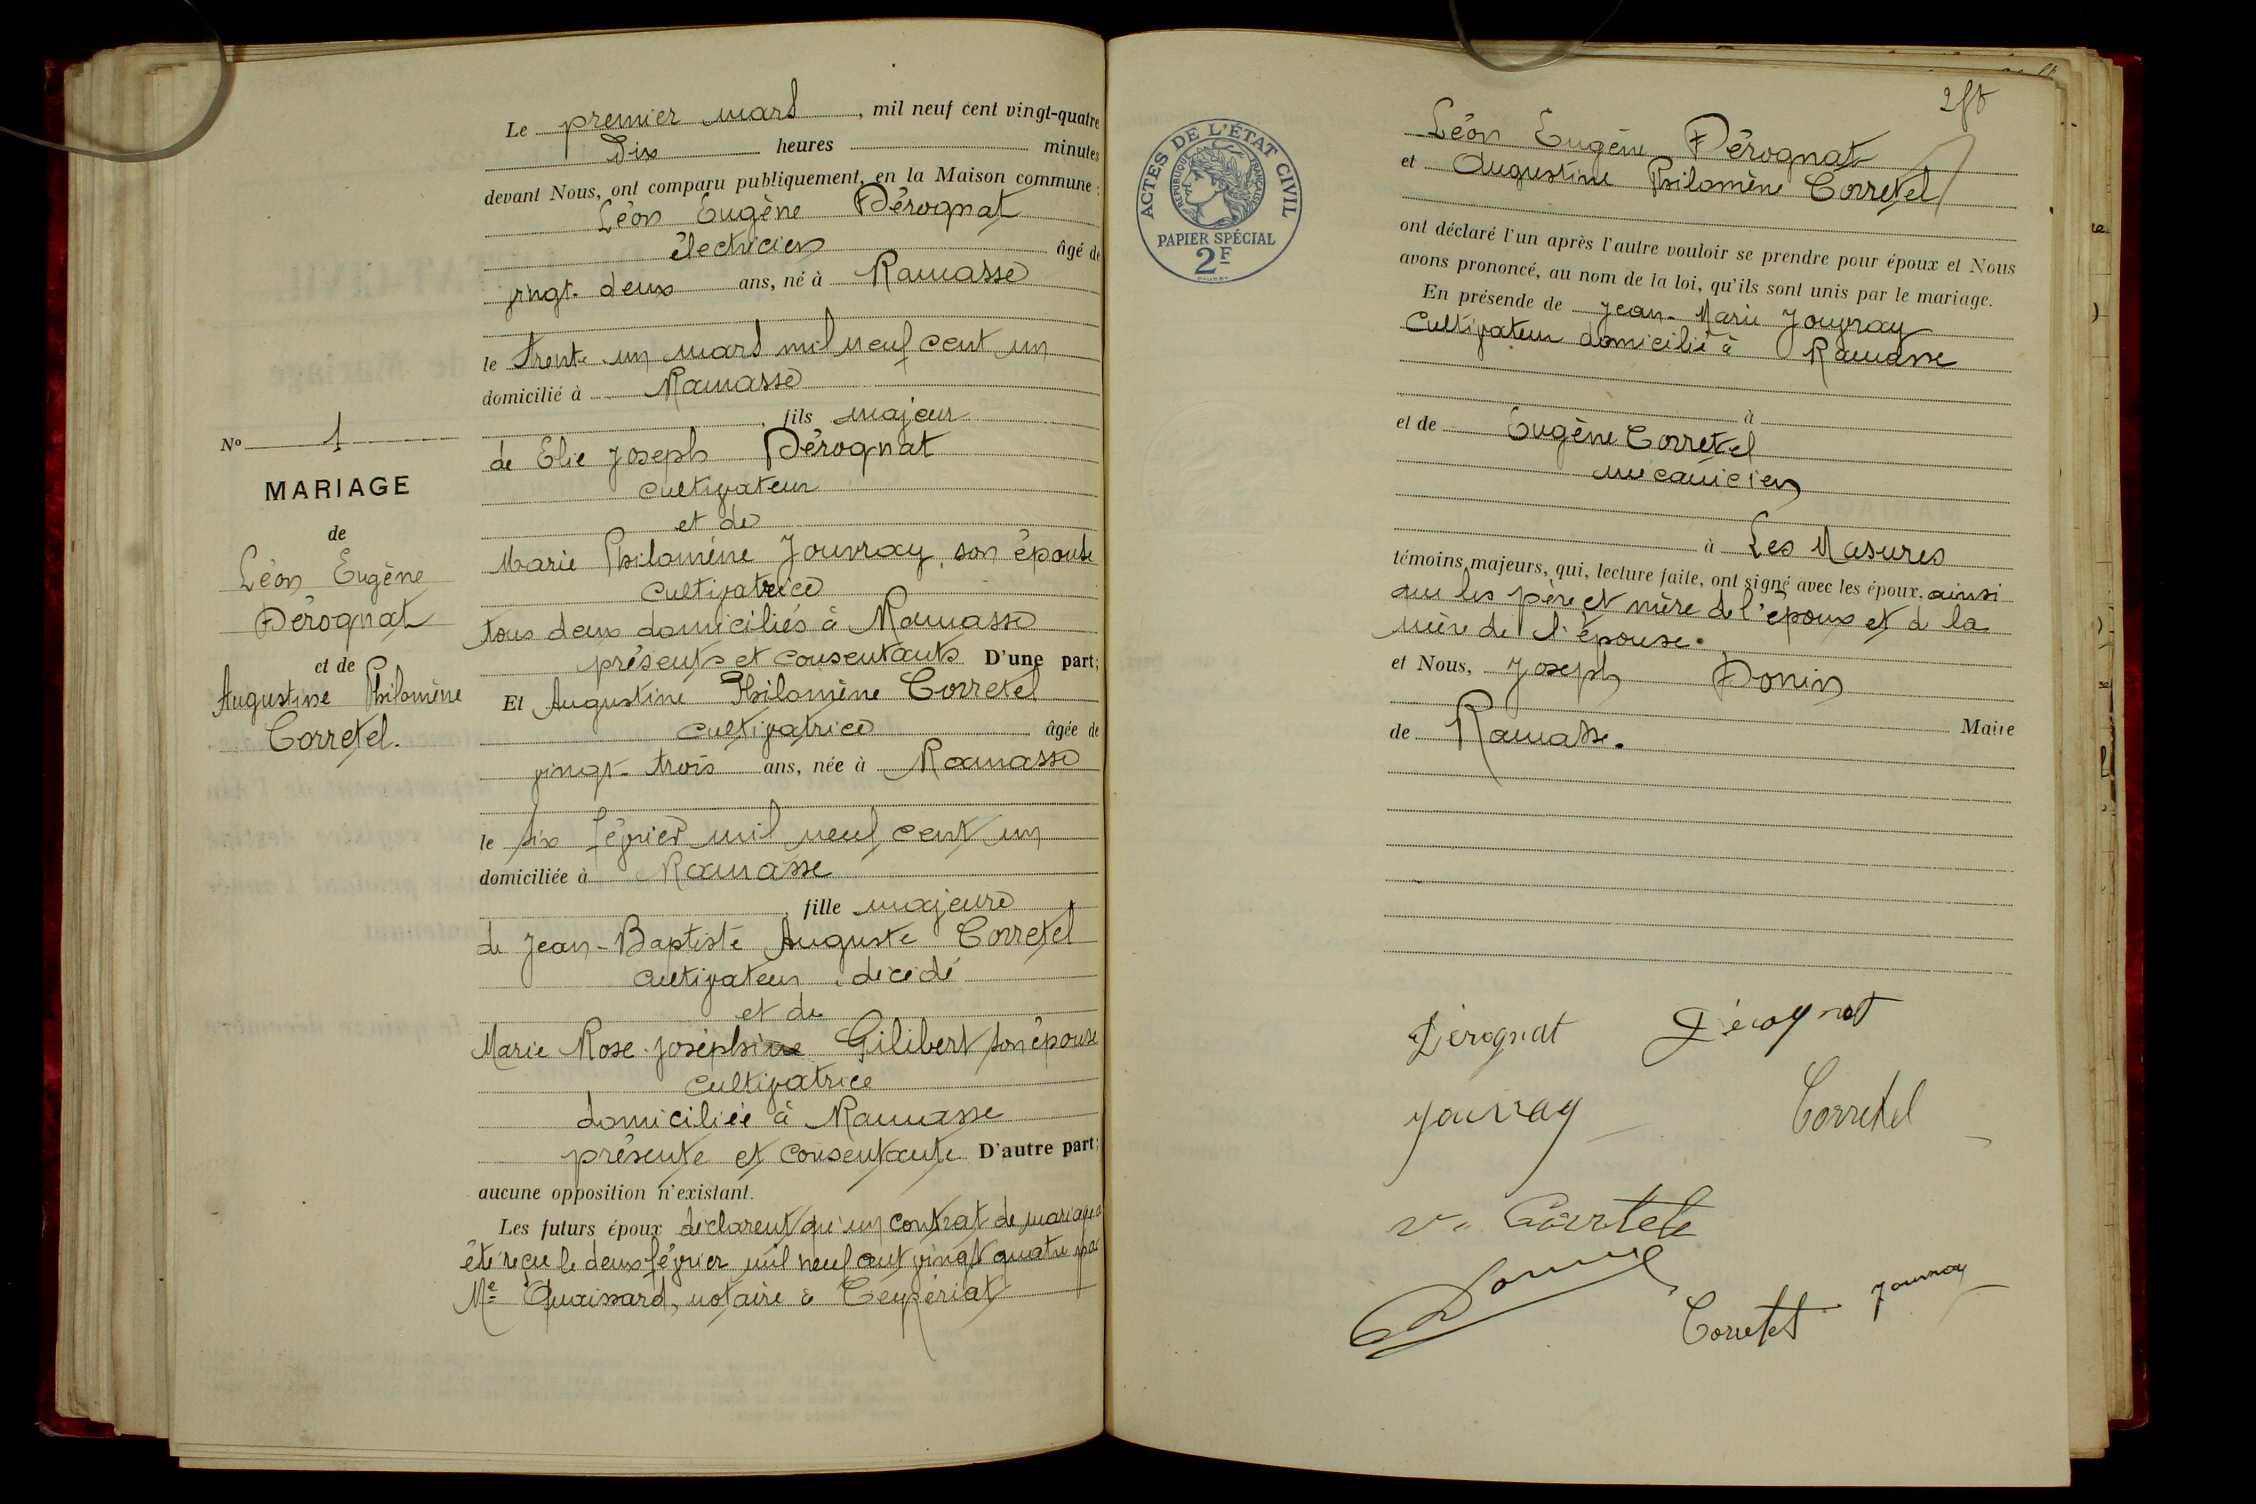 Le premier mars, mil neuf cent vingt-quatre
Dix heures minutes
devant Nous, ont comparu publiquement, en la Maison commune :
Léon Eugène Dérognat
électricien âgé de
vingt-deux ans, né à Ramasse
le trente-un mars mil neuf cent un
domicilié à Ramasse
, fils majeur
de Elie Joseph Dérognat
cultivateur
et de
Marie Philomène Jouvray, son épouse
cultivatrice
tous deux domiciliés à Ramasse
présents et consentants D'une part;
Et Augustine Philomène Corretel
cultivatrice âgée de
vingt-trois ans, née à Ramasse
le six février mil neuf cent un
domiciliée à Ramasse
, fille majeure
de Jean-Baptiste Auguste Corretel
cultivateur, décédé
et de
Marie Rose Joséphine Gilibert son épouse
cultivatrice
domiciliée à Ramasse
présente et consentante D'autre part;
aucune opposition n'existant.
Les futurs époux déclarent qu'un contrat de mariage a
été reçu le deux février mil neuf cent vingt quatre par
Me Quaissard, notaire à Ceyzériat
No 1
MARIAGE
de
Léon Eugène
Dérognat
et de
Augustine Philomène
Corretel.
ACTES DE L'ÉTAT CIVIL
RÉPUBLIQUE FRANÇAISE
PAPIER SPÉCIAL
2F
Léon Eugène Dérognat
et Augustine Philomène Corretel
ont déclaré l'un après l'autre vouloir se prendre pour époux et Nous
avons prononcé, au nom de la loi, qu'ils sont unis par le mariage.
En présende de Jean-Marie Jouvray
cultivateur domicilié à Ramasse
à
et de Eugène Corretel
mécanicien
à Les Masures
témoins majeurs, qui, lecture faite, ont signé avec les époux, ainsi
que les père et mère de l'époux et d la
mère de l'épouse.
et Nous, Joseph Donin
Maire
de Ramasse.
Dérognat Dérognat
Jouvray Corretel
Donin
Corretel Jouvray